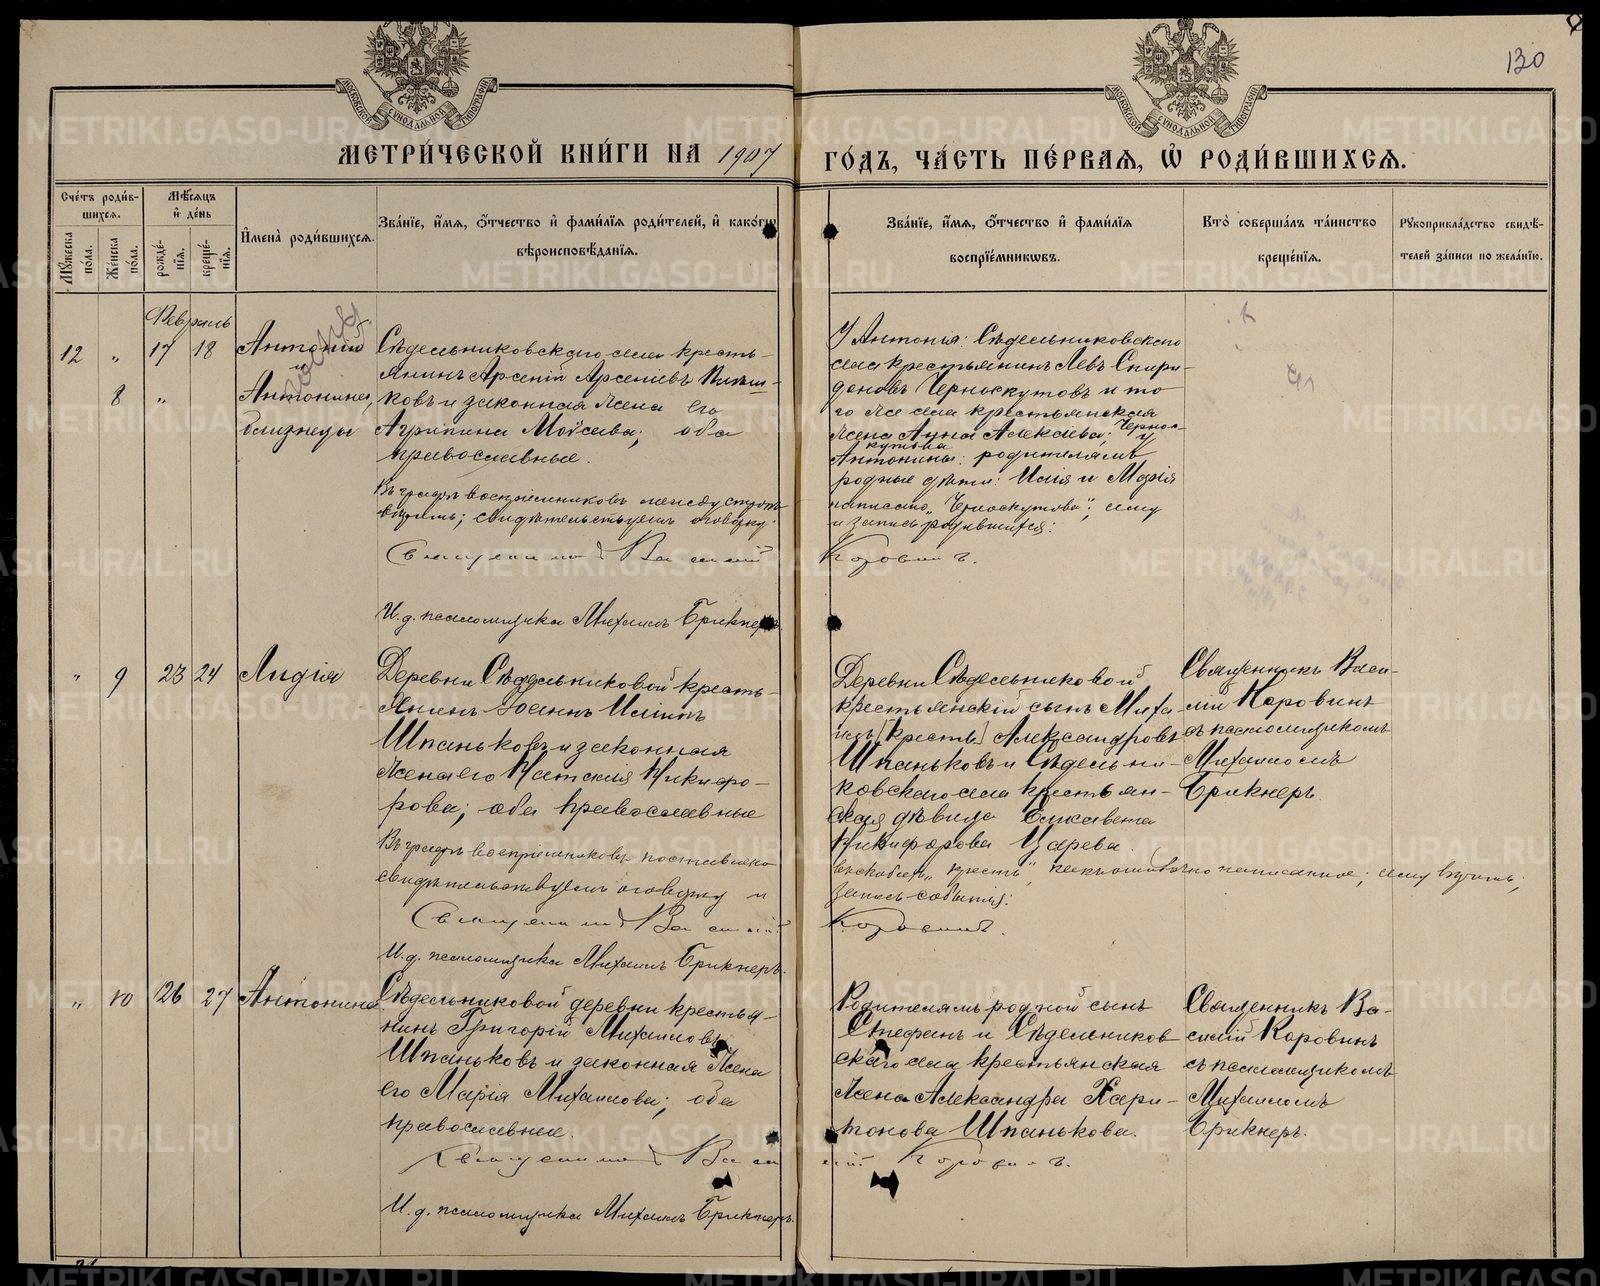 130
МЕТРИ́ЧЕСКОЙ КНИ́ГИ НА 1907 ГО́ДЪ, ЧА́СТЬ ПЕ́РВАЯ, Ѡ҆ РОДИ́ВШИХСѦ.
Сче́тъ роди́в-
шихсѧ.
Мꙋ́жеска по́ла.
Же́нска по́ла.
Мѣ́сѧцъ и҆ де́нь
рожде́-
нїѧ.
креще́-
нїѧ.
И҆мена̀ роди́вшихсѧ.
Зва́нїе, и҆́мѧ, ѻ҆́тчество и҆ фами́лїѧ роди́телей, и҆ како́гѡ
вѣроисповѣ́данїѧ.
Зва́нїе, и҆́мѧ, ѻ҆́тчество и҆ фами́лїѧ
воспрїе́мникѡвъ.
Кто̀ соверша́лъ та́инство
креще́нїѧ.
Рꙋкоприкла́дство свидѣ́-
телей за́писи по жела́нїю.
Февраль
12 „ 17 18 Антоній
и
8 „ Антонина,
близнецы
Сѣдельниковскаго села кресть-
янинъ Арсеній Арсеніевъ
ковъ и законная жена его
Агрипина Моѵсеева; оба
православные.
Въ графѣ воспріемниковъ между строкъ
вѣрить; свидѣтельствуемъ оговорку
Священникъ Василий
И. д. псаломщика Михаилъ Брикнеръ
У Антонія: Сѣдельниковскаго
села крестьянинъ Левъ Спири-
доновъ Черноскутовъ и то-
го же села крестьянская
жена Анна Алексѣева; Чернос-
кутова У
Антонины: родителямъ
родные дѣти: Илія и Марія
написано „Черноскутова“; ему
и запись родившихся:
Коровинъ.
„ 9 23 24 Лидія
Деревни Сѣдельниковой кресть-
янинъ Іоаннъ Иліинъ
Шпаньковъ и законная
жена его Наталія Никифо-
рова; оба православные
Въ графѣ воспріемниковъ поставлено
свидѣтельствуемъ оговорку и
Священникъ Василий
И. д. псаломщика Михаилъ Брикнеръ.
Деревни Сѣдельниковой
крестьянскій сынъ Миха-
илъ [кресть] Александровъ
Шпаньковъ и Сѣдельни-
ковскаго села крестьян-
ская дѣвица Елисавета
Никифорова Царева.
въ скобки „кресть“, какъ ошибочно написанное; ему вѣрить;
запись событія:
Коровинъ.
Священникъ Васи-
лій Коровинъ
съ псаломщикомъ
Михаиломъ
Брикнеръ.
„ 10 26 27 Антонина
Сѣдельниковой деревни крестья-
нинъ Григорій Михаиловъ
Шпаньковъ и законная жена
его Марія Михаилова; оба
православные.
Священникъ Василій Коровинъ.
И. д. псаломщика Михаилъ Брикнеръ.
Родителямъ родной сынъ
Стефанъ и Сѣдельников-
скаго села крестьянская
жена Александра Хари-
тонова Шпанькова.
Священникъ Ва-
силій Коровинъ
съ псаломщикомъ
Михаиломъ
Брикнеръ.
METRIKI.GASO-URAL.RU